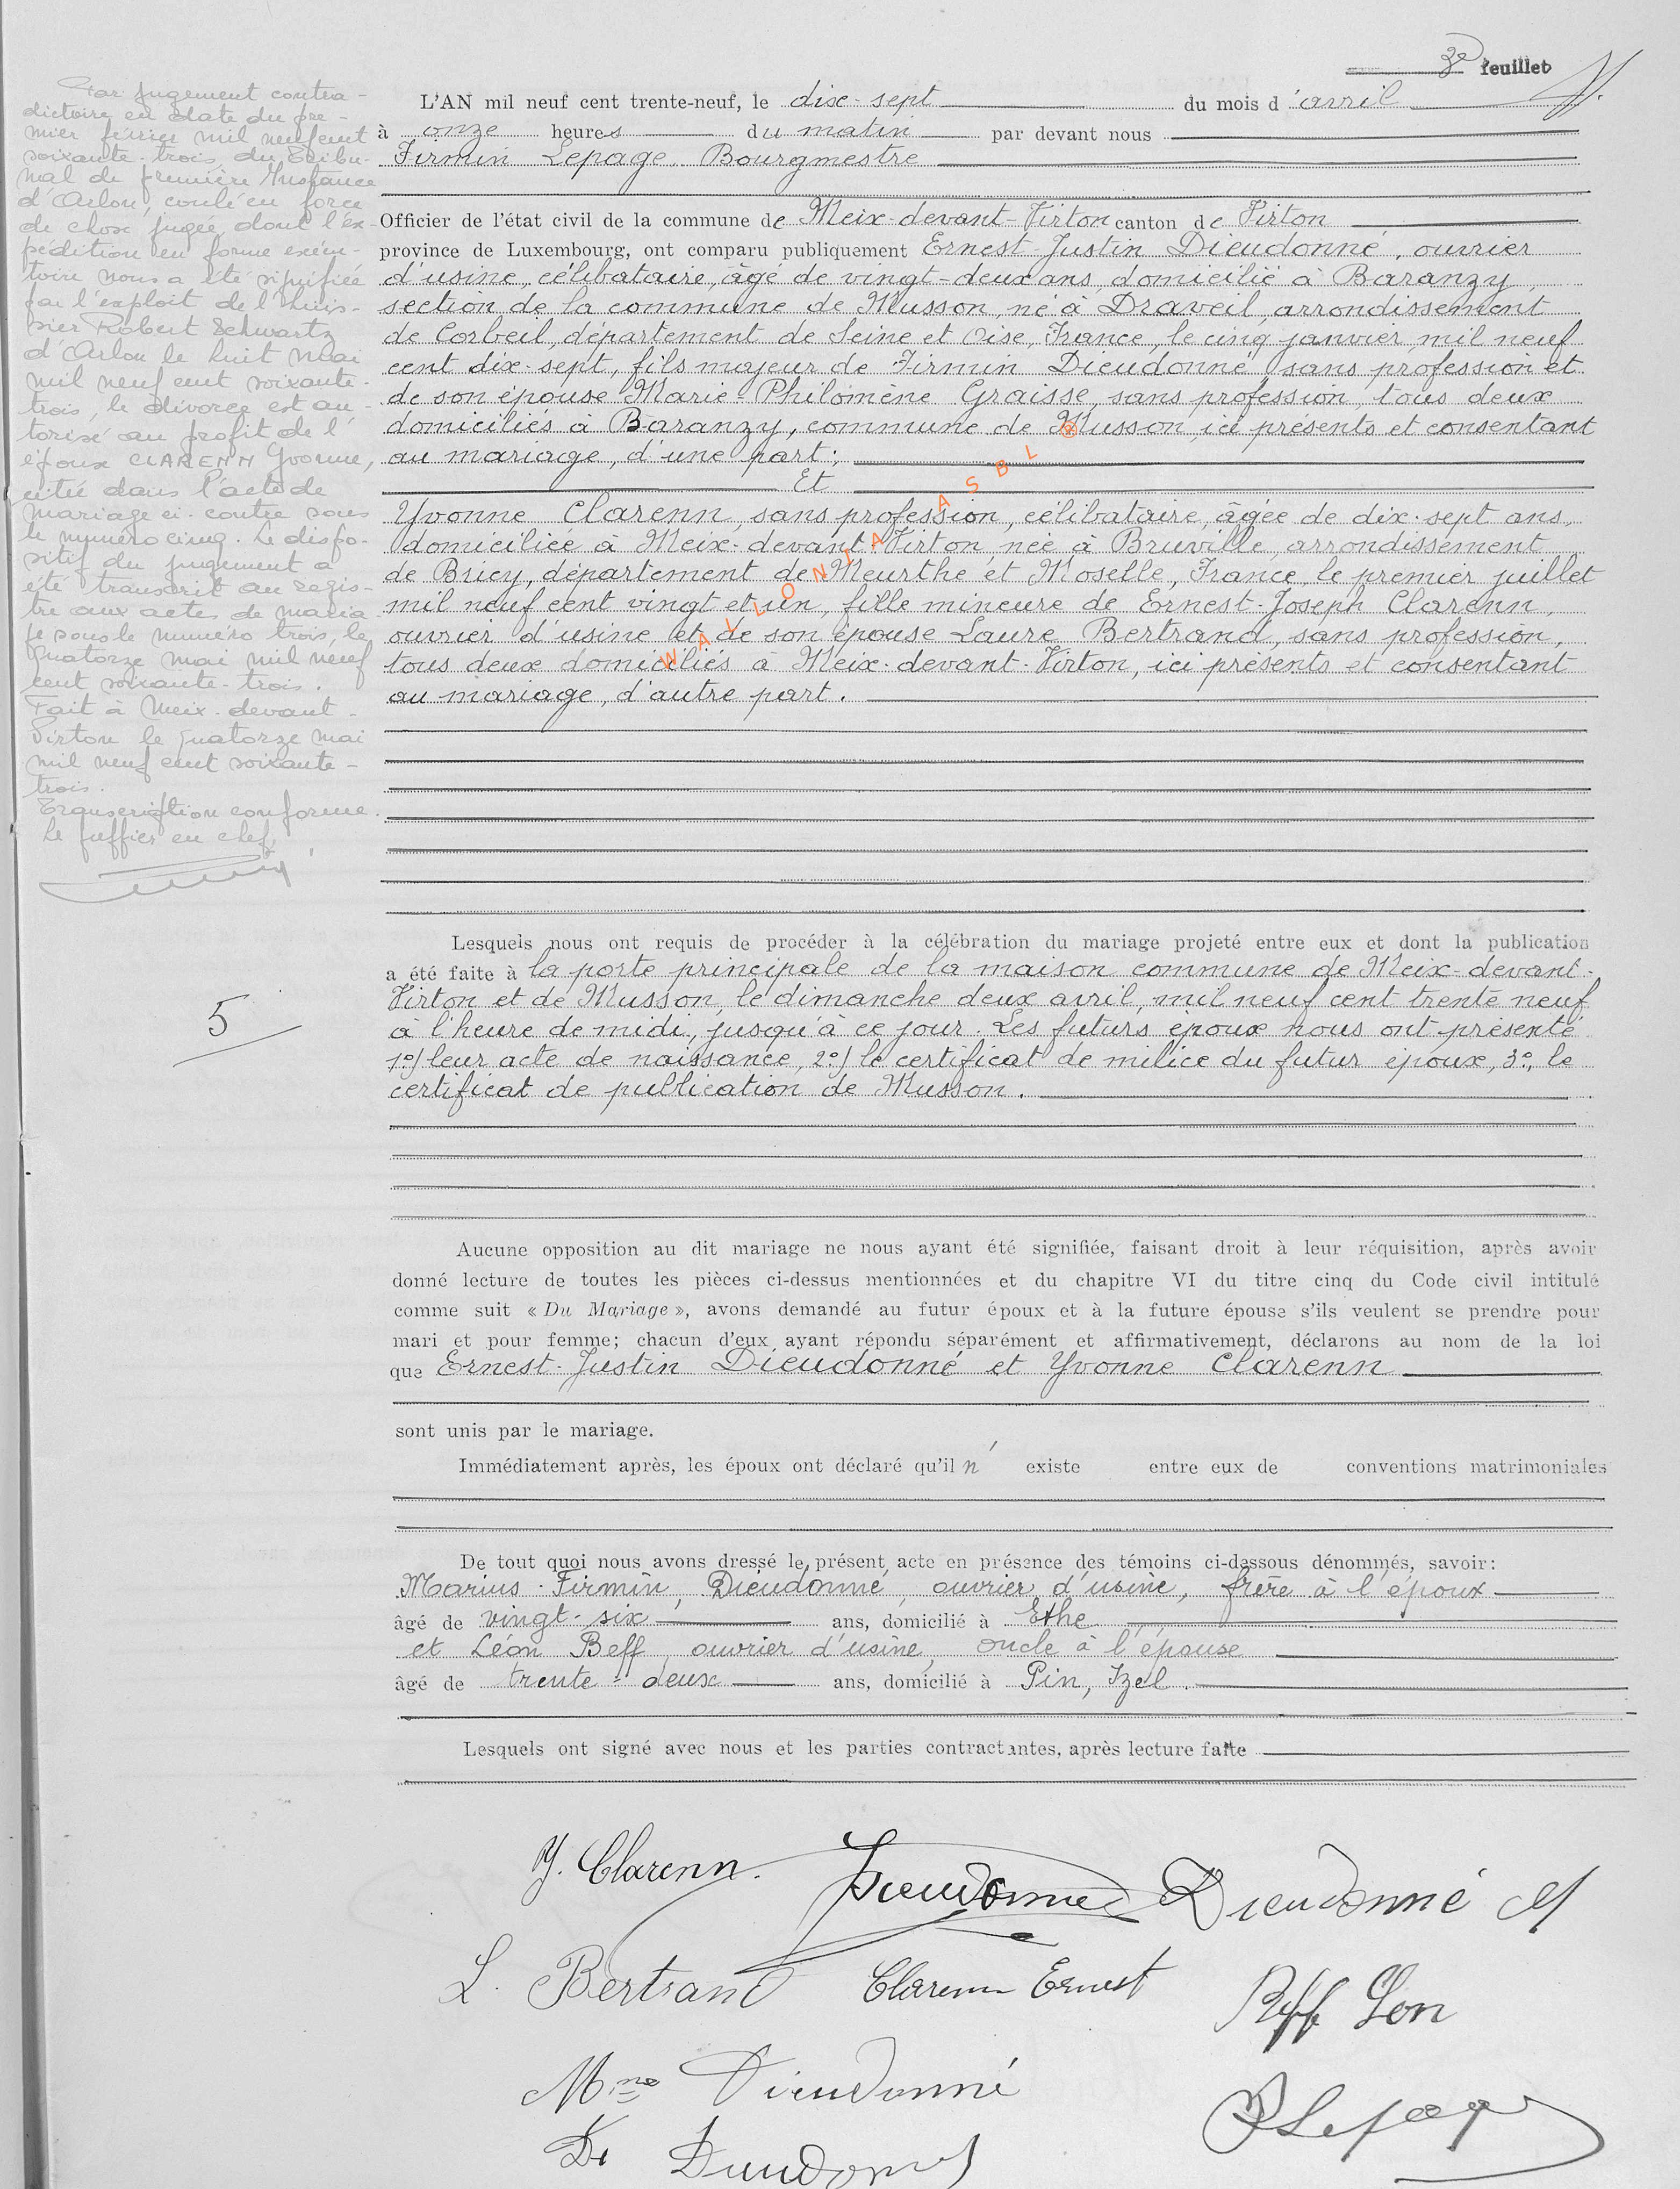 3e feuillet
Par jugement contra-
dictoire en date du pre-
mier février mil neuf cent
soixante-trois, du Tribu-
nal de première Instance
d'Arlon, coulé en force
de chose jugée, dont l'ex-
pédition en forme exécu-
toire nous a été signifiée
par l'exploit de l'huis-
sier Robert Schwartz
d'Arlon le huit mai
mil neuf cent soixante-
trois, le divorce est au-
torisé au profit de l'
époux CLARENN Yvonne,
citée dans l'acte de
mariage ci-contre sous
le numéro cinq. Le dispo-
sitif du jugement a
été transcrit au regis-
tre aux actes de maria
ge sous le numéro trois, le
quatorze mai mil neuf
cent soixante-trois.
Fait à Meix-devant-
Virton le quatorze mai
mil neuf cent soixante-
trois.
Transcription conforme.
Le greffier en chef,
5
L'AN mil neuf cent trente-neuf, le dix-sept du mois d'avril
à onze heures du matin par devant nous
Firmin Lepage Bourgmestre
Officier de l'état civil de la commune de Meix-devant-Virton canton de Virton
province de Luxembourg, ont comparu publiquement Ernest-Justin Dieudonné, ouvrier
d'usine, célibataire, âgé de vingt-deux ans, domicilié à Baranzy,
section de la commune de Musson, né à Draveil, arrondissement
de Corbeil, département de Seine et Oise, France, le cinq janvier mil neuf
cent dix-sept, fils majeur de Firmin Dieudonné, sans profession et
de son épouse Marie-Philomène Graisse, sans profession, tous deux
domiciliés à Baranzy, commune de Musson, ici présents et consentant
au mariage, d'une part;
Et
Yvonne Clarenn, sans profession, célibataire, âgée de dix-sept ans,
domiciliée à Meix-devant-Virton, née à Bruville, arrondissement
de Briey, département de Meurthe et Moselle, France, le premier juillet
mil neuf cent vingt et un, fille mineure de Ernest-Joseph Clarenn,
ouvrier d'usine et de son épouse Laure Bertrand, sans profession,
tous deux domiciliés à Meix-devant-Virton, ici présents et consentant
au mariage, d'autre part.
WALLONIA ASBL ®
Lesquels nous ont requis de procéder à la célébration du mariage projeté entre eux et dont la publication
a été faite à la porte principale de la maison commune de Meix-devant-
Virton et de Musson, le dimanche deux avril, mil neuf cent trente neuf
à l'heure de midi, jusqu'à ce jour. Les futurs époux nous ont présenté
1°) leur acte de naissance, 2°) le certificat de milice du futur époux, 3°, le
certificat de publication de Musson.
Aucune opposition au dit mariage ne nous ayant été signifiée, faisant droit à leur réquisition, après avoir
donné lecture de toutes les pièces ci-dessus mentionnées et du chapitre VI du titre cinq du Code civil intitulé
comme suit « Du Mariage », avons demandé au futur époux et à la future épouse s'ils veulent se prendre pour
mari et pour femme; chacun d'eux ayant répondu séparément et affirmativement, déclarons au nom de la loi
que Ernest-Justin Dieudonné et Yvonne Clarenn
sont unis par le mariage.
Immédiatement après, les époux ont déclaré qu'il n' existe entre eux de conventions matrimoniales
De tout quoi nous avons dressé le présent acte en présence des témoins ci-dessous dénommés, savoir:
Marius-Firmin, Dieudonné, ouvrier d'usine, frère à l'époux
âgé de vingt-six ans, domicilié à Ethe
et Léon Beff, ouvrier d'usine, oncle à l'épouse
âgé de trente-deux ans, domicilié à Pin, Izel.
Lesquels ont signé avec nous et les parties contractantes, après lecture faite
Y. Clarenn. Dieudonné Dieudonné M
L. Bertrand Clarenn Ernest Beff Léon
Mme Dieudonné
Dieudonné
Lepage